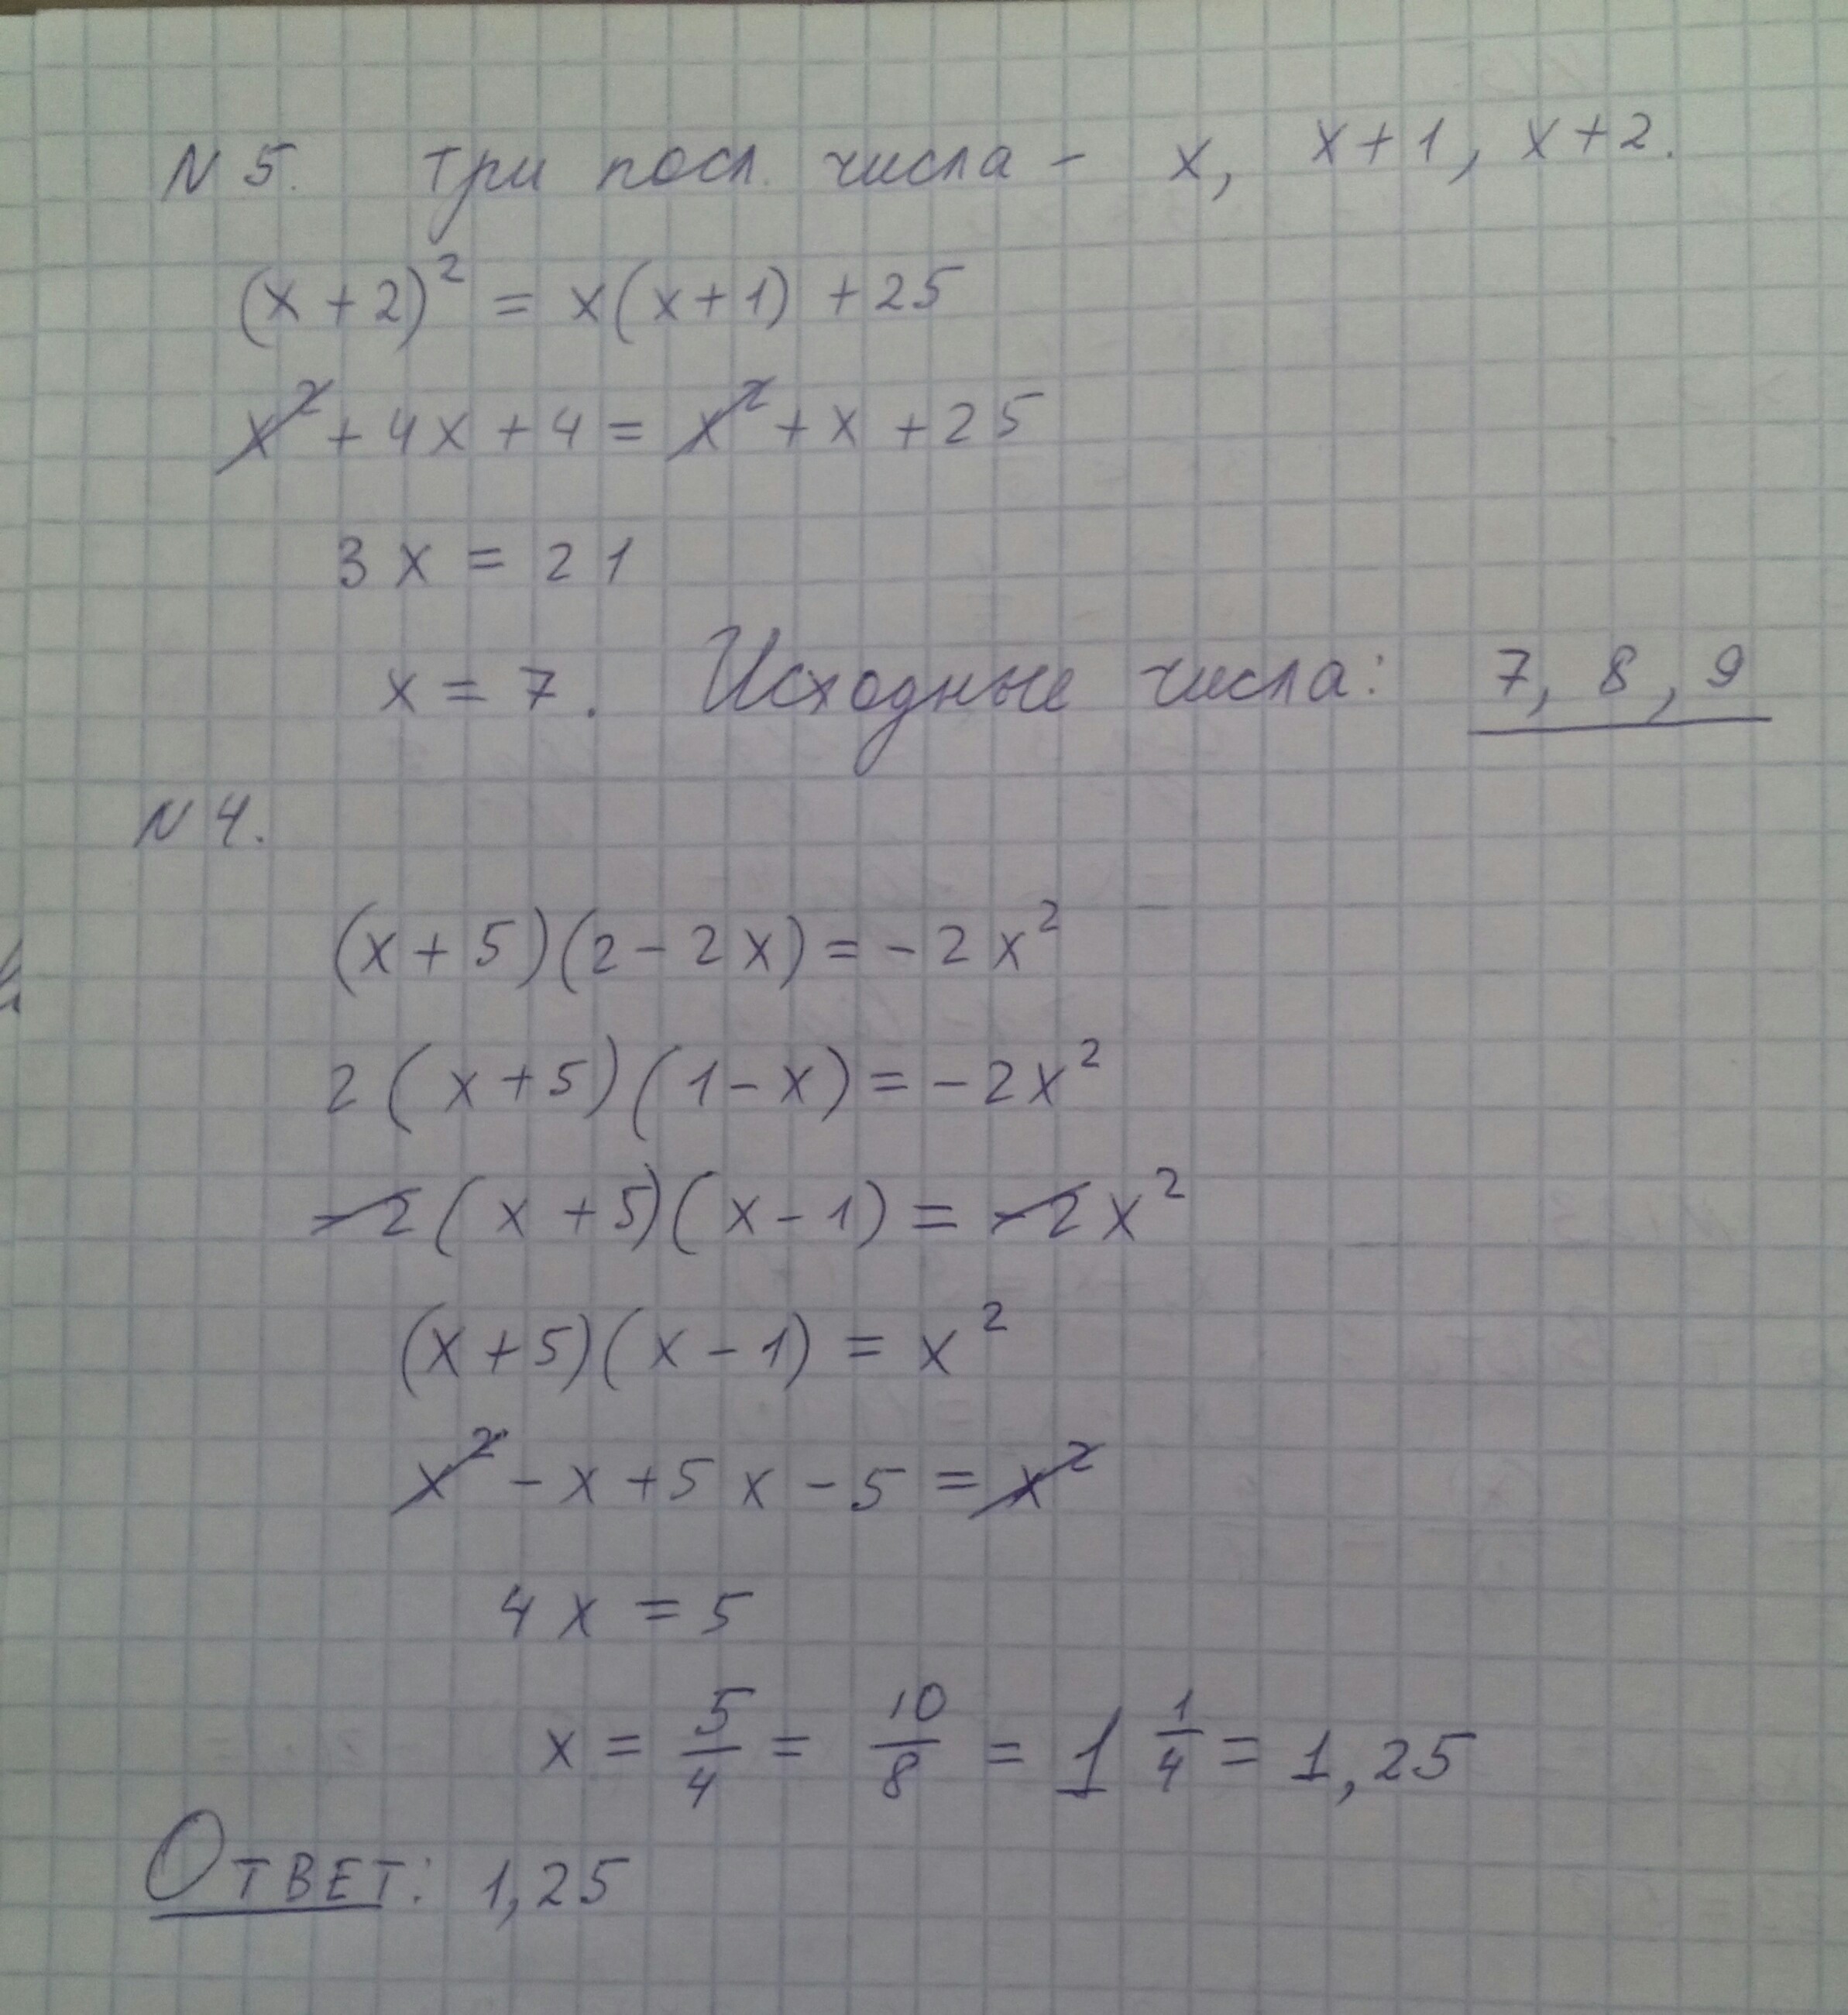 N 5. Три посл. числа - x, x+1, x+2.
(x+2)² = x(x+1) +25
x² + 4x + 4 = x² + x + 25
3x = 21
x = 7. Исходные числа: 7, 8, 9
N 4.
(x+5)(2-2x) = -2x²
2(x+5)(1-x) = -2x²
-2(x+5)(x-1) = -2x²
(x+5)(x-1) = x²
x² - x + 5x - 5 = x²
4x = 5
x = 5/4 = 10/8 = 1 1/4 = 1,25
Ответ: 1,25